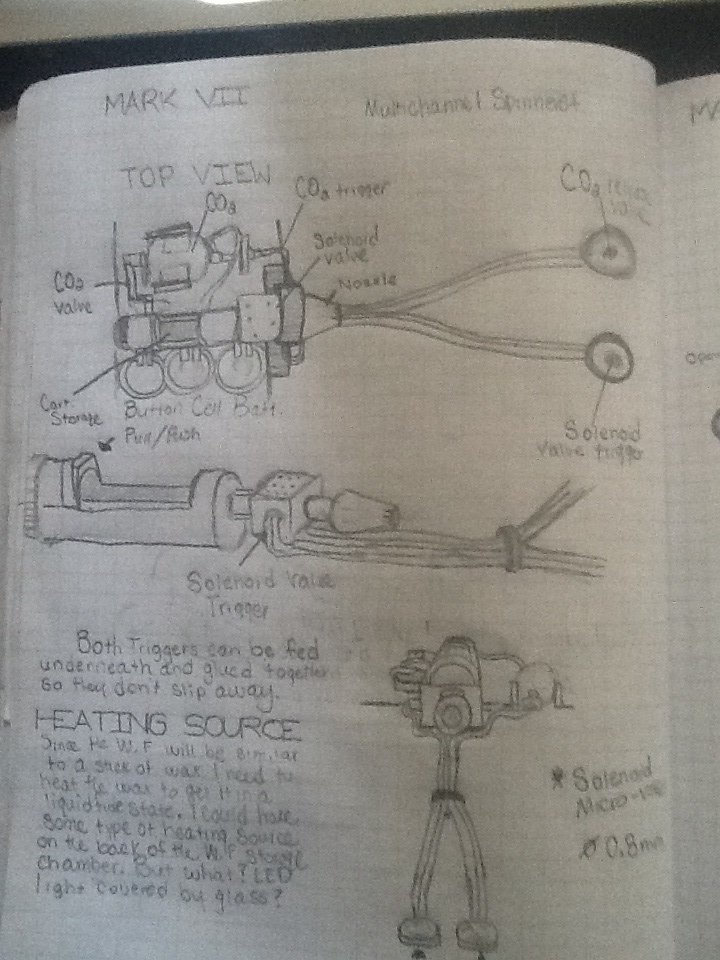 MARK VII
Multichannel Spinneret
TOP VIEW
CO2
CO2 trigger
Solenoid
valve
Nozzle
CO2
CO2
valve
Cart.
Storage
Button Cell Batt.
Pull/Push
Solenoid
valve trigger
Solenoid Valve
Trigger
Both Triggers can be fed
underneath and glued together
so they don't slip away.
HEATING SOURCE
Since the W.F will be similar
to a stick of wax. I need to
heat the wax to get it in a
liquid like state. I could have
some type of heating source
on the back of the W.F storage
chamber. But what? LED
light covered by glass?
* Solenoid
Micro-
Ø 0.8mm